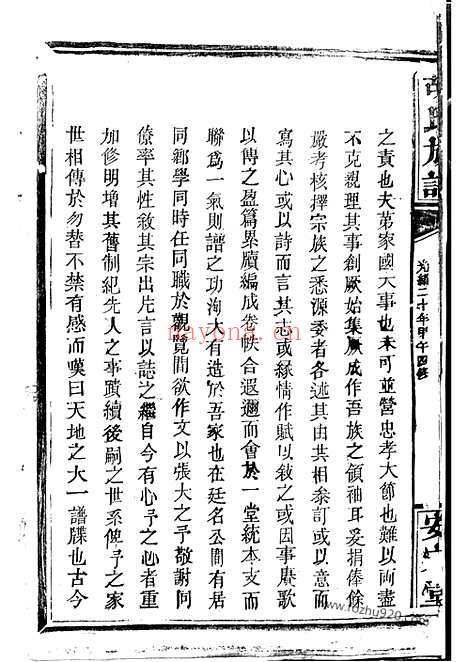 胡氏族譜
光緒二十年甲午四修
安 堂
之責也夫第家國大事也未可並營忠孝大節也難以両盡
不克親理其事創厥始集厥成作吾族之領袖耳爰捐俸餘
嚴考核擇宗族之悉源委者各述其由共相叅訂或以意而
寫其心或以詩而言其志或緣情作賦以敘之或因事賡歌
以傳之盈篇累牘編成卷帙合遐邇而會於一堂統本支而
聯爲一氣則譜之功洵大有造於吾家也在廷名公間有居
同鄉學同時任同職於觀覽間欲作文以張大之予敬謝同
僚率其性敘其宗出片言以誌之繼自今有心予之心者重
加修明增其舊制紀先人之事蹟續後嗣之世系俾予之家
世相傳於勿替不禁有感而嘆曰天地之大一譜牒也古今
nayona.cn
www.10zhu920.com